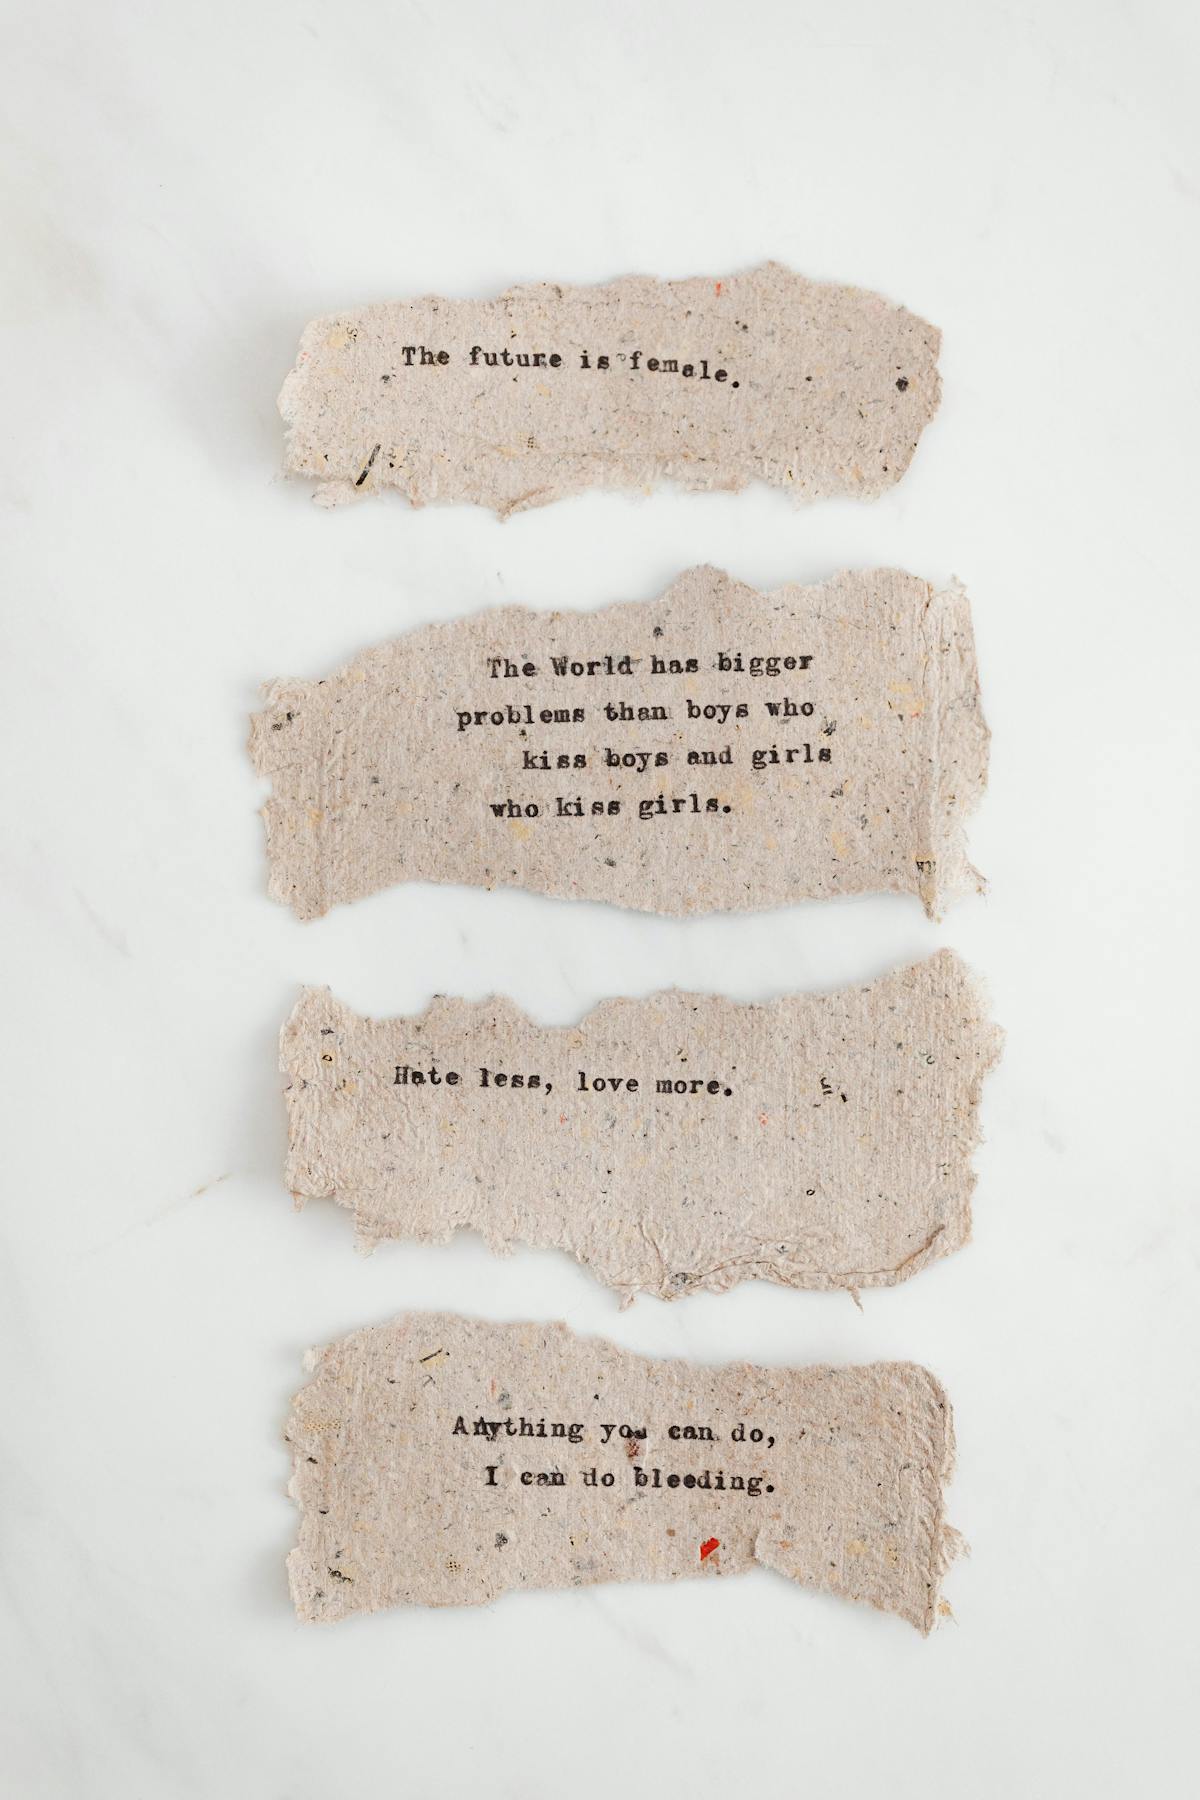 The future is female.
The World has bigger
problems than boys who
kiss boys and girls
who kiss girls.
Hate less, love more.
Anything you can do,
I can do bleeding.